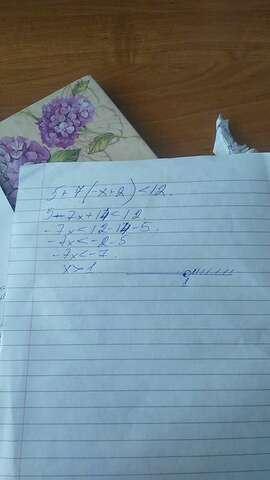 5+7(-x+2)<12.
5-7x+14<12.
-7x<12-14-5.
-7x<-2-5
-7x<-7.
x>1
1